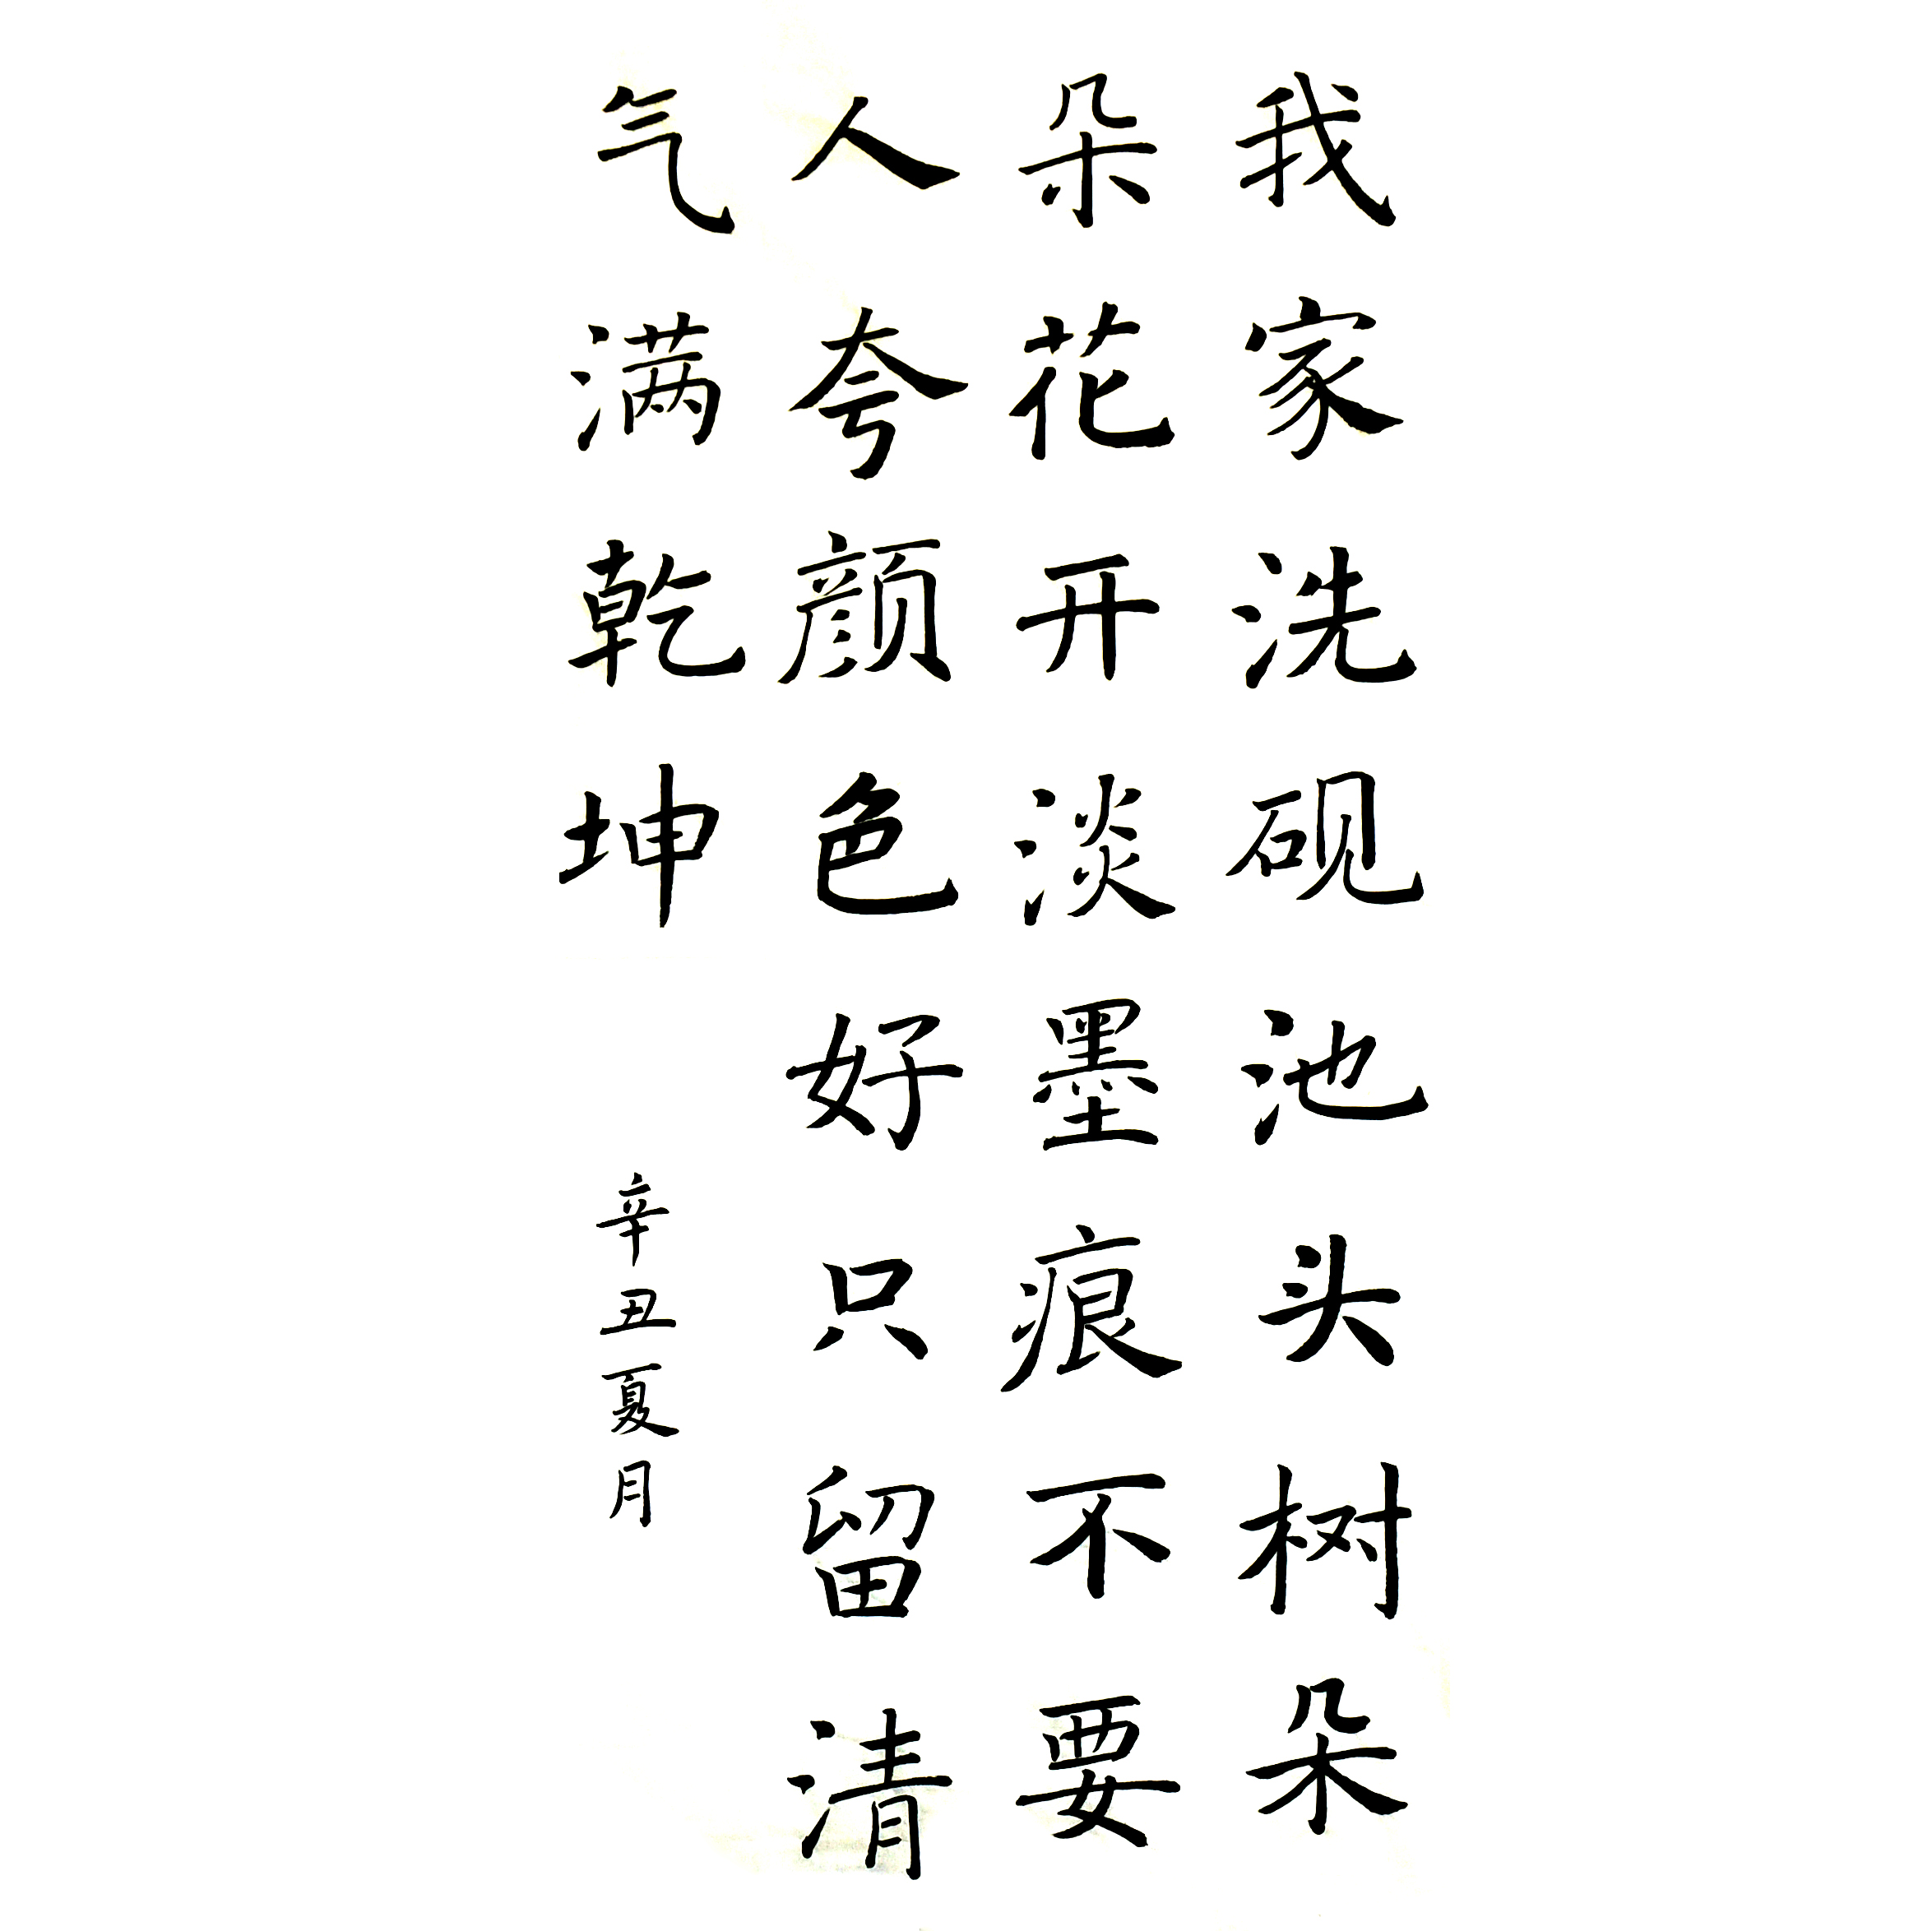 我家洗砚池头树朵
朵花开淡墨痕不要
人夸颜色好只留清
气满乾坤
辛丑夏月